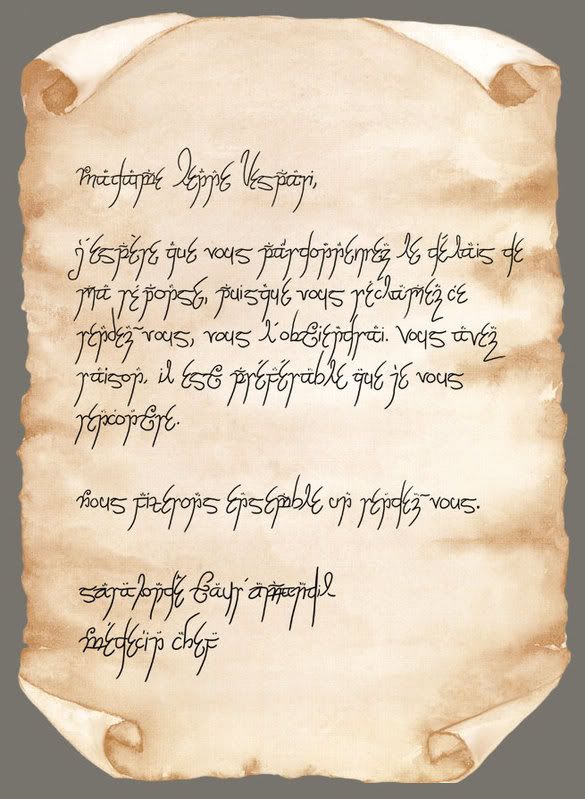 Madame Lenne Vespari,
J'espère que vous pardonnerez le délais de
ma réponse, puisque vous réclamez ce
rendez-vous, vous l'obtiendrai. Vous avez
raison, il est préférable que je vous
rencontre.
Nous fixerons ensemble un rendez-vous.
Saralondë
Médecin chef